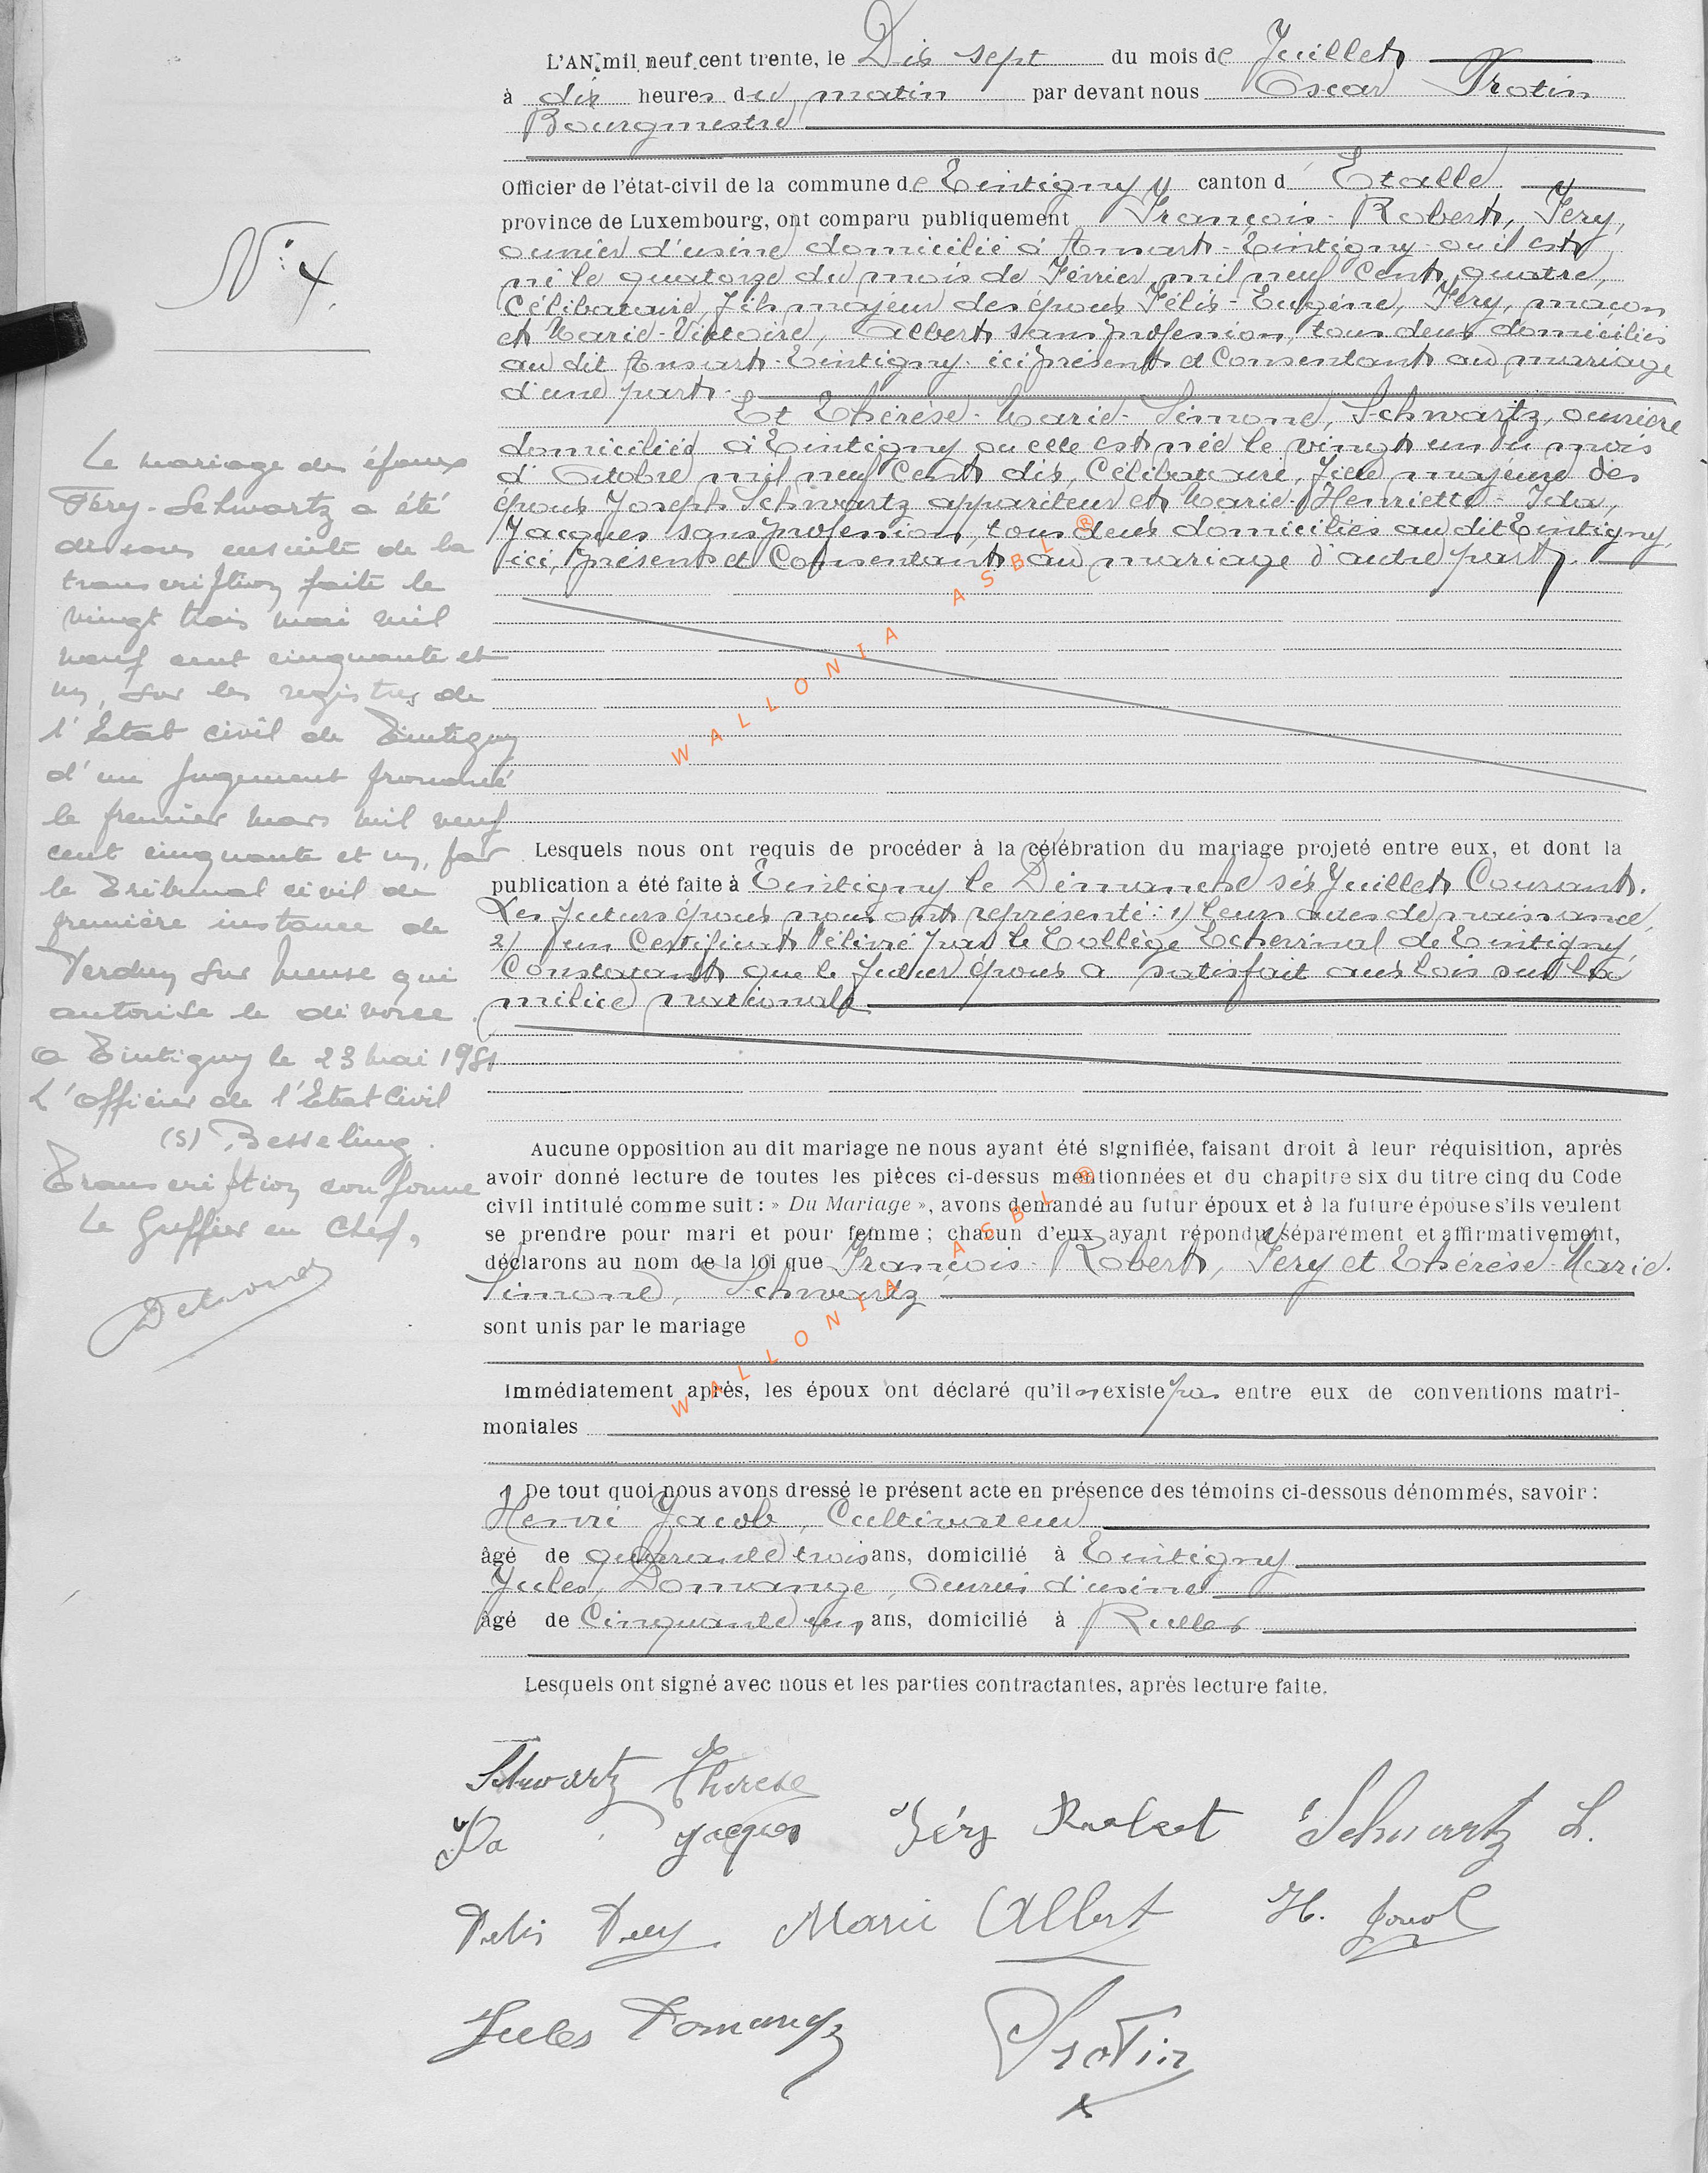 L'AN mil neuf cent trente, le Dix sept du mois de Juillet
à dix heures du matin par devant nous Oscar Protin
Bourgmestre
Officier de l'état-civil de la commune de Tintigny canton d' Etalle
province de Luxembourg, ont comparu publiquement François-Robert, Féry,
ouvrier d'usine domicilié à Ansart-Tintigny où il est
né le quatorze du mois de Février mil neuf Cent quatre,
Célibataire, fils majeur des époux Félix-Eugène, Féry, maçon
et Marie-Victoire, Albert sans profession, tous deux domiciliés
au dit Ansart-Tintigny ici présent et Consentant au mariage
d'une part.
Et Thérèse-Marie-Simone, Schwartz, ouvrière
domiciliée à Tintigny où elle est née le vingt un du mois
d'Octobre mil neuf Cent dix, Célibataire, fille majeure des
époux Joseph Schwartz appariteur et Marie-Henriette-Ida,
Jacques sans profession, tous deux domiciliés au dit Tintigny,
ici, présent et Consentant au mariage d'autre part.
N° 4.
Le mariage des époux
Féry-Schwartz a été
dissous ensuite de la
transcription faite le
vingt trois mai mil
neuf cent cinquante et
un, sur les registres de
l'Etat civil de Tintigny
d'un jugement prononcé
le premier mars mil neuf
cent cinquante et un, par
le Tribunal civil de
première instance de
Verdun sur Meuse qui
autorise le divorce.
A Tintigny le 23 mai 1951
L'officier de l'Etat Civil
(s) Besseling.
Transcription conforme
Le Greffier en Chef,
Lesquels nous ont requis de procéder à la célébration du mariage projeté entre eux, et dont la
publication a été faite à Tintigny le Dimanche six Juillet Courant.
Les futurs époux nous ont représenté: 1) leurs actes de naissance,
2) un Certificat délivré par le Collège Echevinal de Tintigny
Constatant que le futur époux a satisfait aux lois sur la
milice nationale
Aucune opposition au dit mariage ne nous ayant été signifiée, faisant droit à leur réquisition, après
avoir donné lecture de toutes les pièces ci-dessus mentionnées et du chapitre six du titre cinq du Code
civil intitulé comme suit : » Du Mariage », avons demandé au futur époux et à la future épouse s'ils veulent
se prendre pour mari et pour femme ; chacun d'eux ayant répondu séparément et affirmativement,
déclarons au nom de la loi que François-Robert, Féry et Thérèse-Marie-
Simone, Schwartz
sont unis par le mariage
Immédiatement après, les époux ont déclaré qu'il n'existe pas entre eux de conventions matri-
moniales
De tout quoi nous avons dressé le présent acte en présence des témoins ci-dessous dénommés, savoir :
Henri Jacob, Cultivateur
âgé de quarante trois ans, domicilié à Tintigny
Jules, Domange, Ouvrier d'usine
âgé de Cinquante un ans, domicilié à Rulles
Lesquels ont signé avec nous et les parties contractantes, après lecture faite.
Schwartz Thérèse
Ida Jacques Féry Robert Schwartz J.
Félix Féry Marie Albert H. Jacob
Jules Domange Protin
WALLONIA ASBL ®
WALLONIA ASBL ®